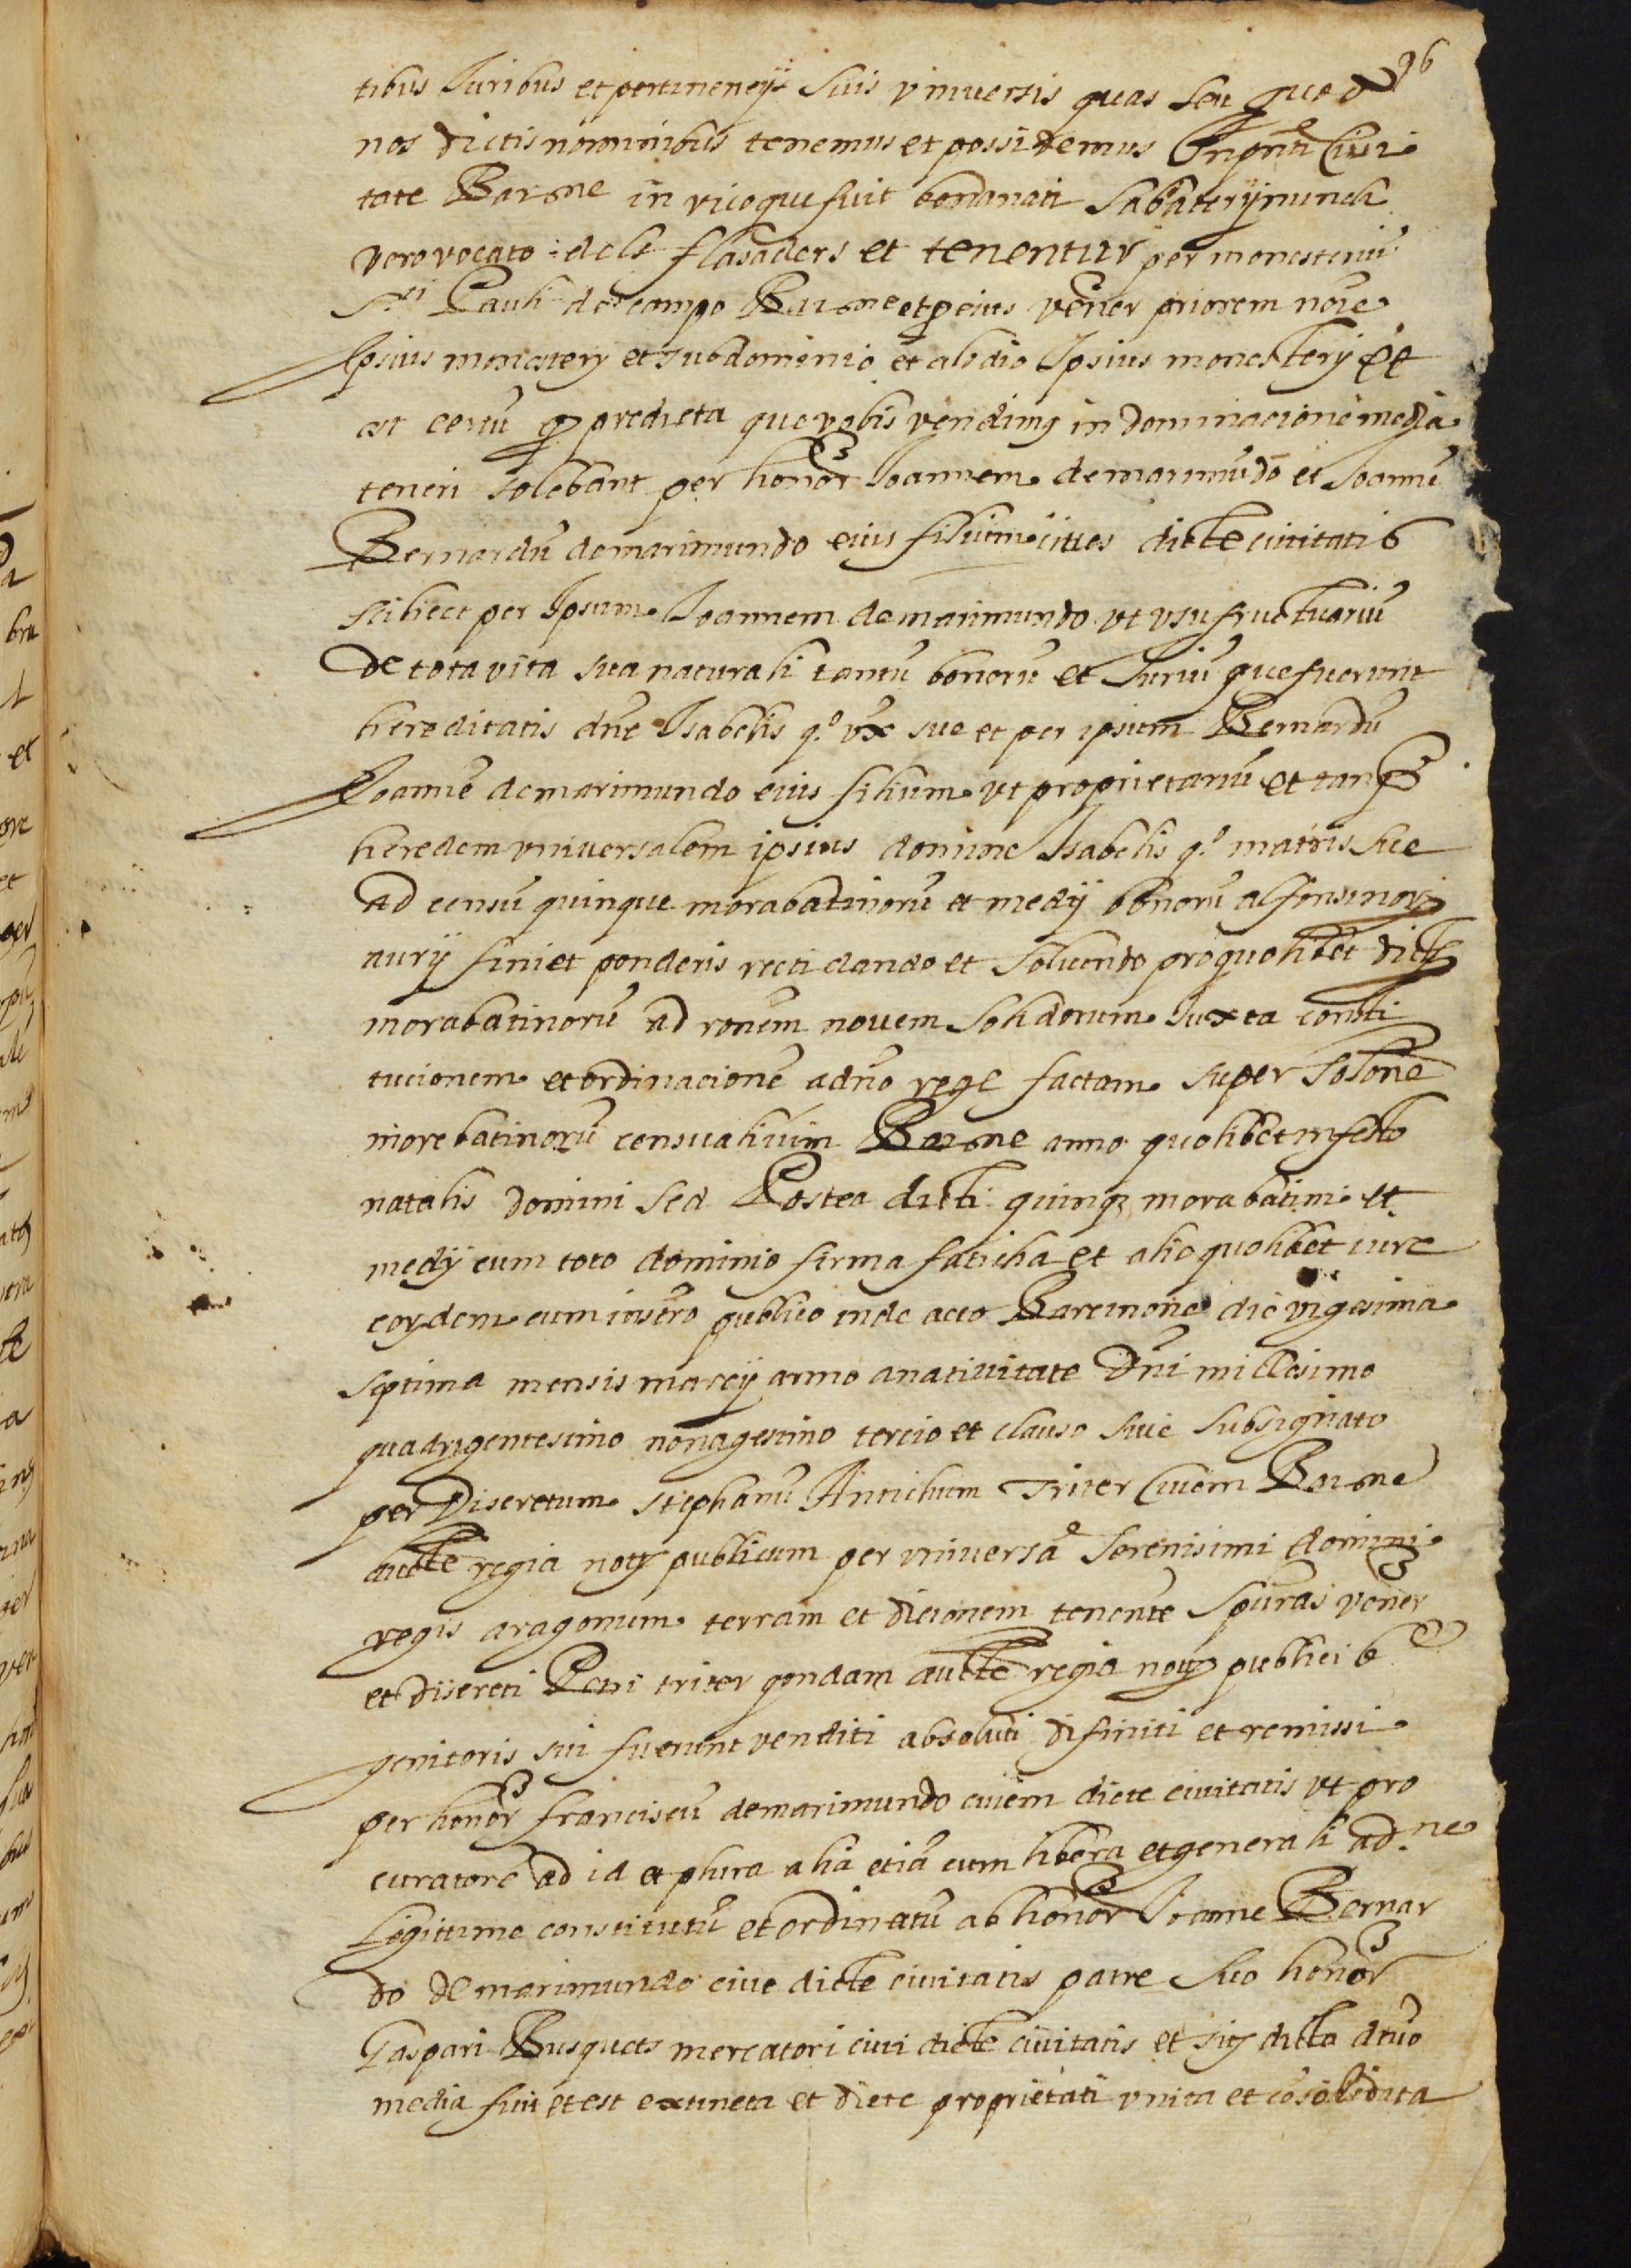 96
tibus Juribus et pertinencijs suis vniuersis quas seu que &
nos dictis nominibus tenemus et possidemus In pnti Ciui
tate Barne in vico qui fuit bonanati Sabaterij nunch
vero vocato dels flasaders et tenentur per monesteriū
sti Pauli de campo Barne et p eius vener priorem noīe
Ipsius monastery et sub dominio et alodio Ipsius monestery Et
est certū q predicta que vobis vendimus in dominacione media
teneri solebant per honor Joannem de marimūdo et Joannē
Bernardū de marimundo eius filium ciues dicte ciuitatis
scilicet per Ipsum Joannem de marimundo vt vsufructuariū
de tota vita sua naturali tantū bonorū et Juriū que fuerunt
hereditatis dne Isabelis qo vx sue et per ipsum Bernardū
Joannē de marimundo eius filium vt proprietariū et tanq
heredem vniuersalem ipsius domine Isabelis qo matris sue
ad censū quinque morabatinorū et medij bonorū alfonsinorz
aurij fini et ponderis recti dando et soluendo pro quolibet dictz
morabatinorū ad ronēm nouem solidorum Juxta consti
tucionem et ordinacionē a dno rege factam super solone
morebatinorū censualium Barne anno quolibet in festo
natalis domini sed Postea dicti quinqz morabatini et
medij cum toto dominio firma faticha et alio quolibet iure
eorzdem cum instro publico inde acto Barcinone die vigesima
septima mensis marcij anno a natiuitate Dni millesimo
quadrigentesimo nonagesimo tercio et clauso siue subsignato
per Discretum stephanū Antichum Triter Ciuem Barne
aucte regia notz publicum per vniuersā serenisimi domini
regis aragonum terram et dicionem tenente spuras vener
et discreti Petri triter qondam aucte regia notz publici b
genitoris sui fuerunt venditi absoluti difiniti et remissi
per honor franciscū de marimundo ciuem dicte ciuitatis vt pro
curatorē ad id et plura alia etiā cum libera et generali ad.ne
Legitime constitutū et ordinatū ab honor Joanne Bernar
do de marimundo ciue dicte ciuitatis patre suo honor
Gaspari Busquets mercatori ciui dicte ciuitatis et sic dicta dnvo
media fuit et est extincta et dicte proprietati vnita et cōsolidata